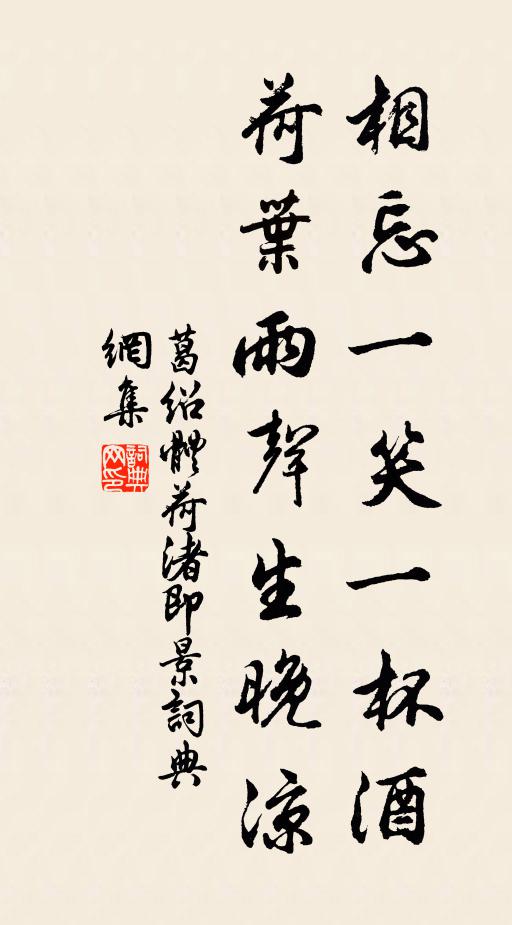 相忘一笑一杯酒
荷葉雨聲生晚涼
葛紹體荷渚即景詞典
網集
詞典
网印